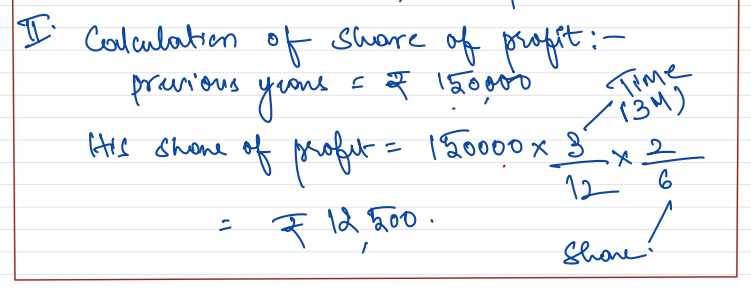 II. Calculation of share of profit:-
previous years = ₹ 150,000
Time
(3M)
His share of profit = 150000 × 3/12 × 2/6
= ₹ 12,500.
Share